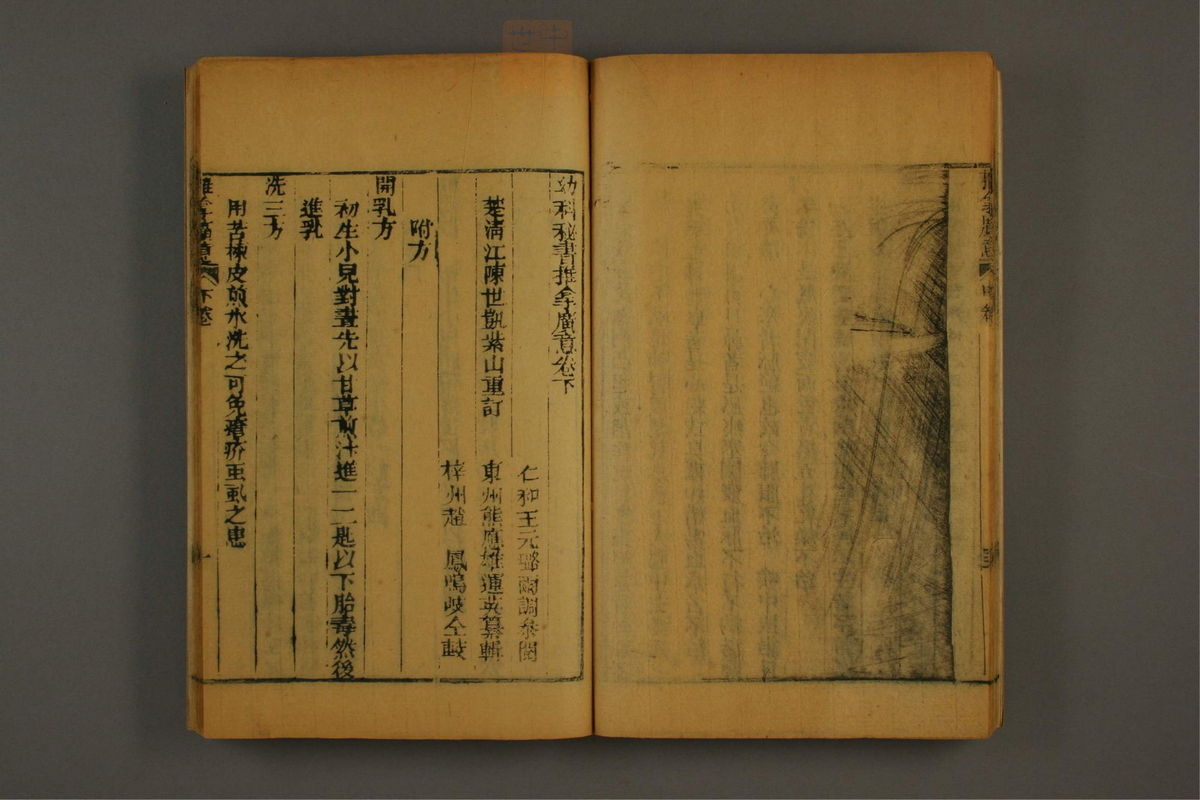 幼科秘書推拿廣意卷下
仁和王元璐兩調叅閱
楚清江陳世凱紫山重訂
東州熊應雄運英纂輯
梓州趙　鳳鳴岐仝較
附方
開乳方
初生小兒對晝先以甘草煎汁進一二匙以下胎毒然後
進乳
洗三方
用苦楝皮煎水洗之可免瘡疥虱之患
推拿廣意
下卷
一
推拿廣意
中卷